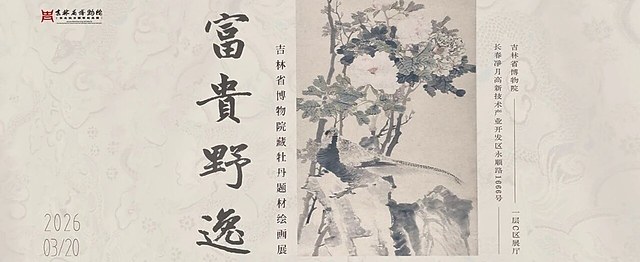 吉林省博物院
富貴野逸
吉林省博物院藏牡丹题材绘画展
吉林省博物院
长春净月高新技术产业开发区永顺路1666号
一层C区展厅
2026
03/20